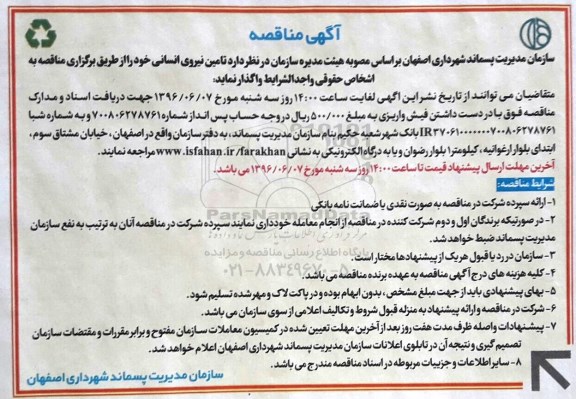 آگهی مناقصه
سازمان مدیریت پسماند شهرداری اصفهان بر اساس مصوبه هیئت مدیره سازمان در نظر دارد تامین نیروی انسانی خود را از طریق برگزاری مناقصه به
اشخاص حقوقی واجدالشرایط واگذار نماید:
متقاضیان می توانند از تاریخ نشر این آگهی لغایت ساعت ۱۴:۰۰ روز سه شنبه مورخ ۱۳۹۶/۰۶/۰۷ جهت دریافت اسناد و مدارک
مناقصه فوق با در دست داشتن فیش واریزی به مبلغ ۵۰۰/۰۰۰ ریال در وجه حساب پس انداز شماره ۷۰۰۸۰۶۲۷۸۷۶۱ و به شماره شبا
بانک شهر شعبه حکیم بنام سازمان مدیریت پسماند، به دفتر سازمان واقع در اصفهان، خیابان مشتاق سوم،
ابتدای بلوار ارغوانیه، کیلومتر۱ بلوار رضوان و یا به درگاه الکترونیکی به نشانی www.isfahan.ir/farakhan مراجعه نمایند.
آخرین مهلت ارسال پیشنهاد قیمت تا ساعت ۱۴:۰۰ روز سه شنبه مورخ ۱۳۹۶/۰۶/۰۷ می باشد.
شرایط مناقصه:
۱- ارائه سپرده شرکت در مناقصه به صورت نقدی یا ضمانت نامه بانکی
۲- در صورتیکه برندگان اول و دوم شرکت کننده در مناقصه از انجام معامله خودداری نمایند سپرده شرکت در مناقصه آنان به ترتیب به نفع سازمان
مدیریت پسماند ضبط خواهد شد.
۳- سازمان در رد یا قبول هر یک از پیشنهادها مختار است.
۴- کلیه هزینه های درج آگهی مناقصه به عهده برنده مناقصه می باشد.
۵- بهای پیشنهادی باید از جهت مبلغ مشخص، بدون ابهام بوده و در پاکت لاک و مهر شده تسلیم شود.
۶- شرکت در مناقصه و ارائه پیشنهاد به منزله قبول شروط و تکالیف اعلامی از سوی سازمان می باشد.
۷- پیشنهادات واصله ظرف مدت هفت روز بعد از آخرین مهلت تعیین شده در کمیسیون معاملات سازمان مفتوح و برابر مقررات و مقتضات سازمان
تصمیم گیری و نتیجه آن در تابلوی اعلانات سازمان مدیریت پسماند شهرداری اصفهان اعلام خواهد شد.
۸- سایر اطلاعات و جزییات مربوطه در اسناد مناقصه مندرج می باشد.
سازمان مدیریت پسماند شهرداری اصفهان
ParsNamadData
پایگاه اطلاع رسانی مناقصه و مزایده
۰۲۱-۸۸۳۴۹۶۷۰-۵